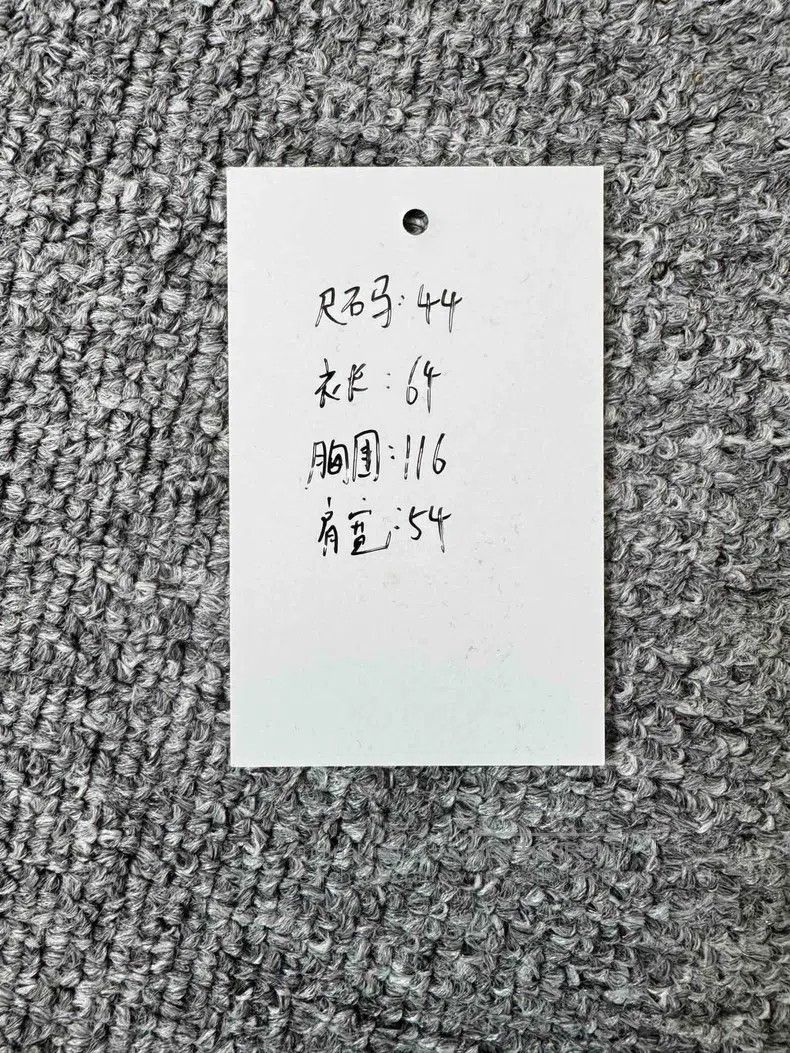 尺码:44
衣长:64
胸围:116
肩宽:54